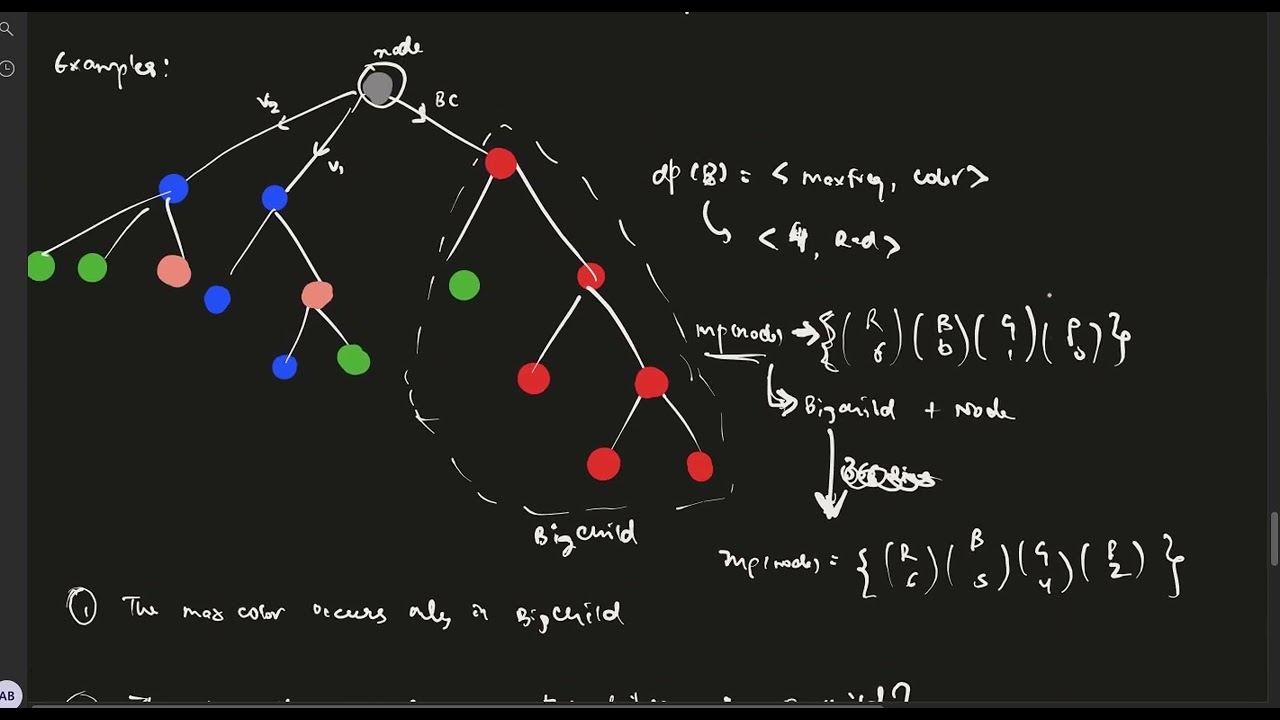 Examples:
node
V2
BC
V1
dp(B) = < maxfreq, color>
< 4, Red>
mp(node) → { (R 6) (B 0) (G 1) (P 0) }
Bigchild + Node
BigChild
mp(node) = { (R 6) (B 5) (G 4) (P 2) }
① The max color occurs only in BigChild
AB